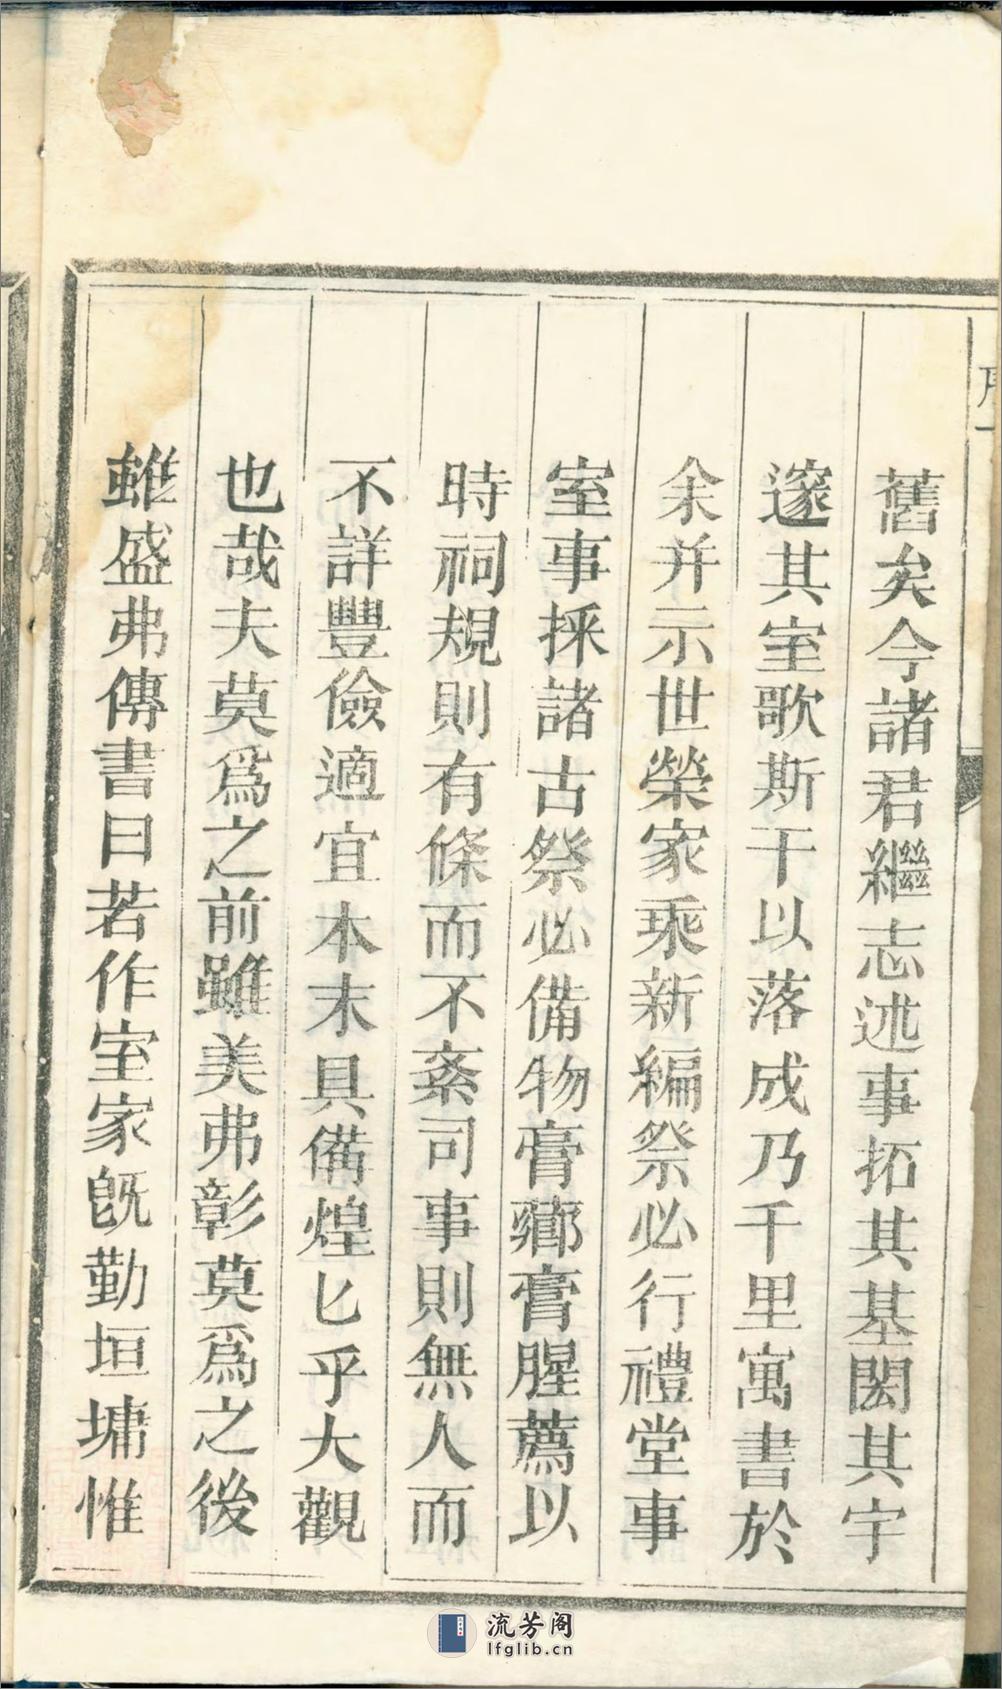 舊矣今諸君繼志述事拓其基閎其宇
邃其室歌斯干以落成乃千里寓書於
余并示世榮家乘新編祭必行禮堂事
室事採諸古祭必備物膏薌膏腥薦以
時祠規則有條而不紊司事則無人而
不詳豐儉適宜本末具備煌匕乎大觀
也哉夫莫爲之前雖美弗彰莫爲之後
雖盛弗傳書曰若作室家旣勤垣墉惟
序一
流芳阁
lfglib.cn